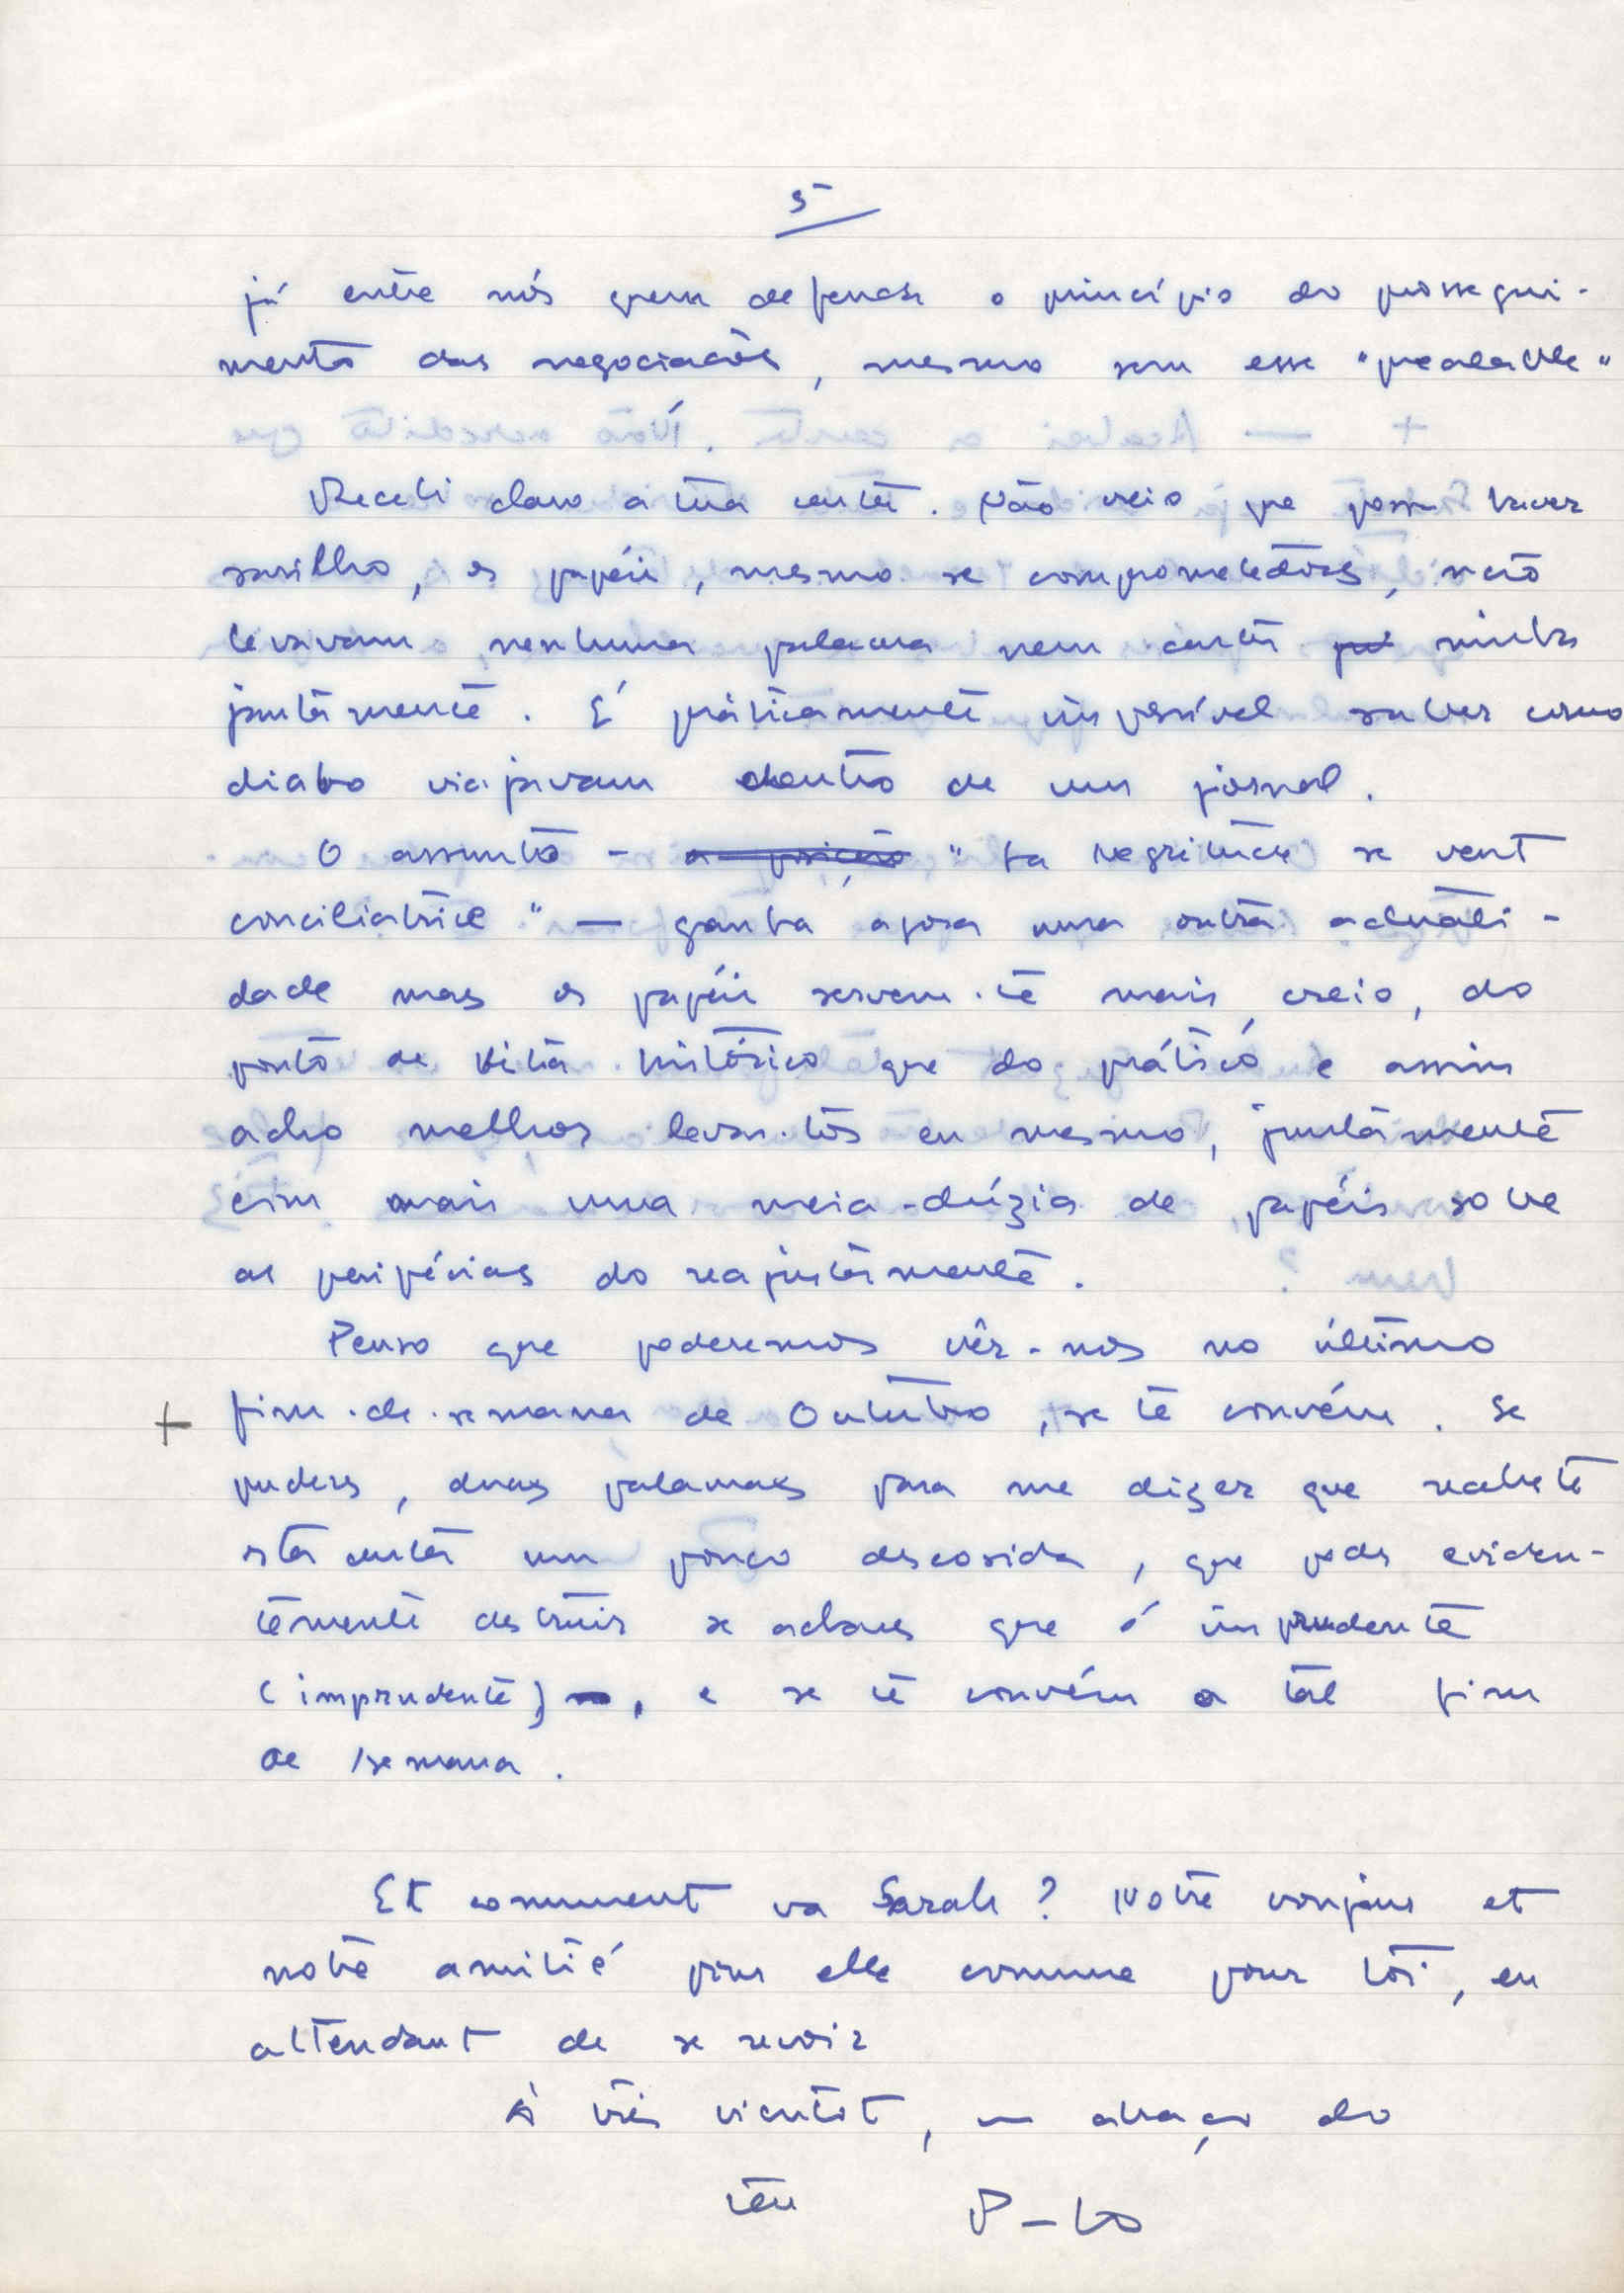 5
já entre nós quem defenda o princípio do prossegui-
mento das negociações, mesmo sem esse "prealable"
Recebi claro a tua carta. Não creio que possa haver
sarilho, os papéis, mesmo se comprometedores, não
levavam nenhuma palavra nem carta minha
juntamente. É práticamente impossível saber como
diabo viajavam dentro de um jornal.
O assunto - "La Negritude se veut
conciliatrice" — ganha agora uma outra actuali-
dade mas os papéis servem-te mais, creio, do
ponto de vista histórico que do prático e assim
acho melhor levar-tos eu mesmo, juntamente
com mais uma meia-dúzia de papéis sobre
as peripécias do reajustamento.
Penso que poderemos vêr-nos no último
+ fim-de-semana de Outubro, se te convém. Se
puderes, duas palavras para me dizer que recebeste
esta carta um pouco descosida, que podes eviden-
temente destruir se achares que é imprudente
(imprudente), e se te convém o tal fim
de semana.
Et comment va Sarah? Notre bonjour et
notre amitié pour elle comme pour toi, en
attendant de se revoir
À très bientôt, um abraço do
teu